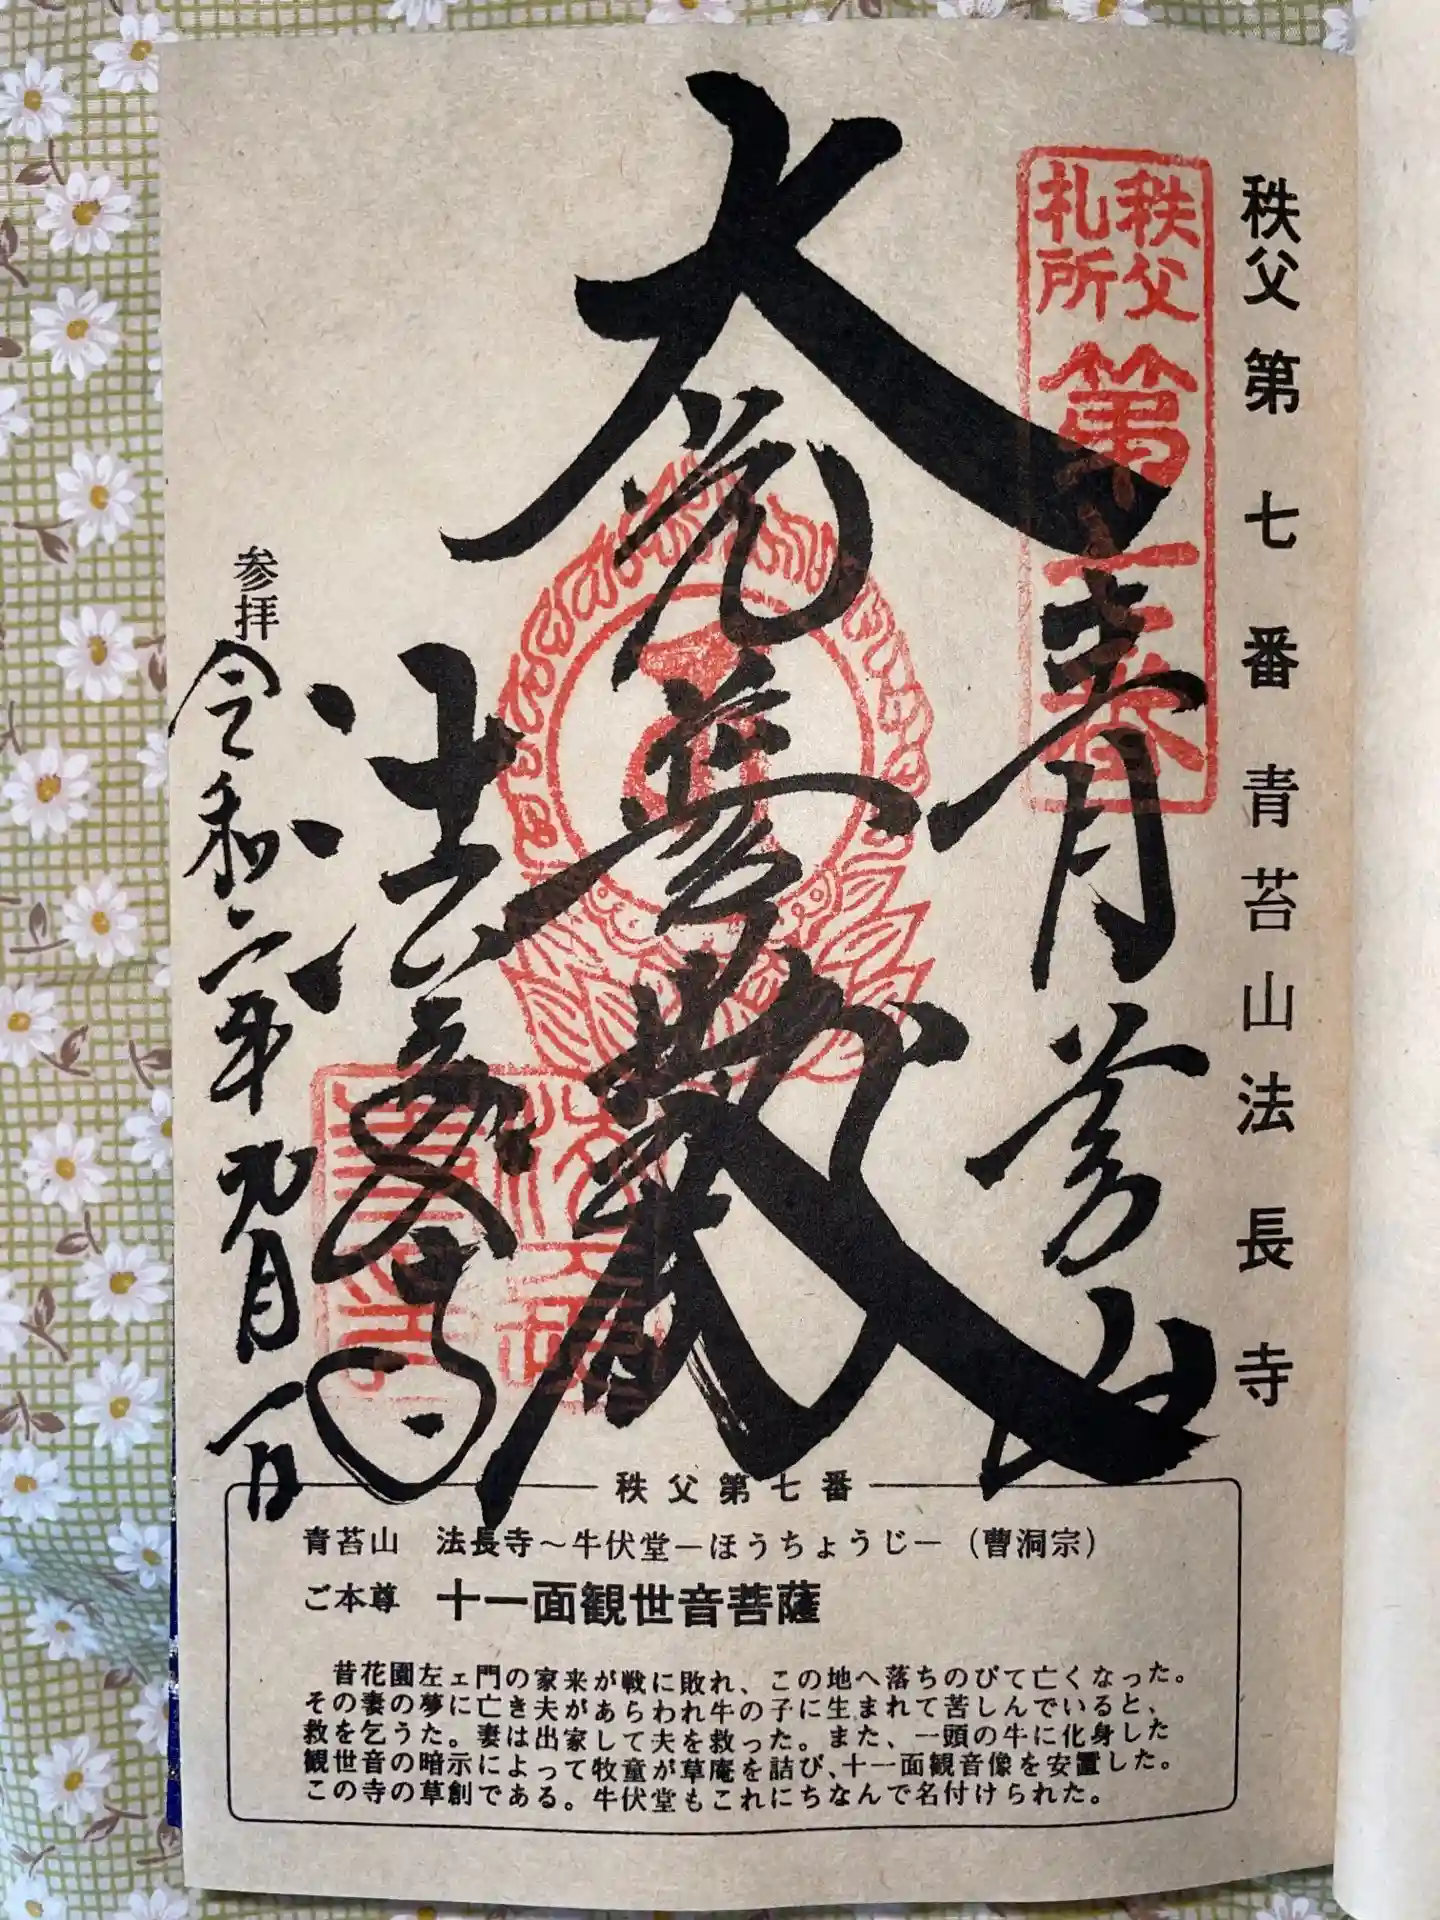 秩父第七番青苔山法長寺
秩父
札所
第七番
青苔山
大光普殿
法長寺
参拝
令和二年九月一日
秩父第七番
青苔山 法長寺～牛伏堂－ほうちょうじ－（曹洞宗）
ご本尊 十一面観世音菩薩
昔花園左ェ門の家来が戦に敗れ、この地へ落ちのびて亡くなった。
その妻の夢に亡き夫があらわれ牛の子に生まれて苦しんでいると、
救を乞うた。妻は出家して夫を救った。また、一頭の牛に化身した
観世音の暗示によって牧童が草庵を詰び、十一面観音像を安置した。
この寺の草創である。牛伏堂もこれにちなんで名付けられた。